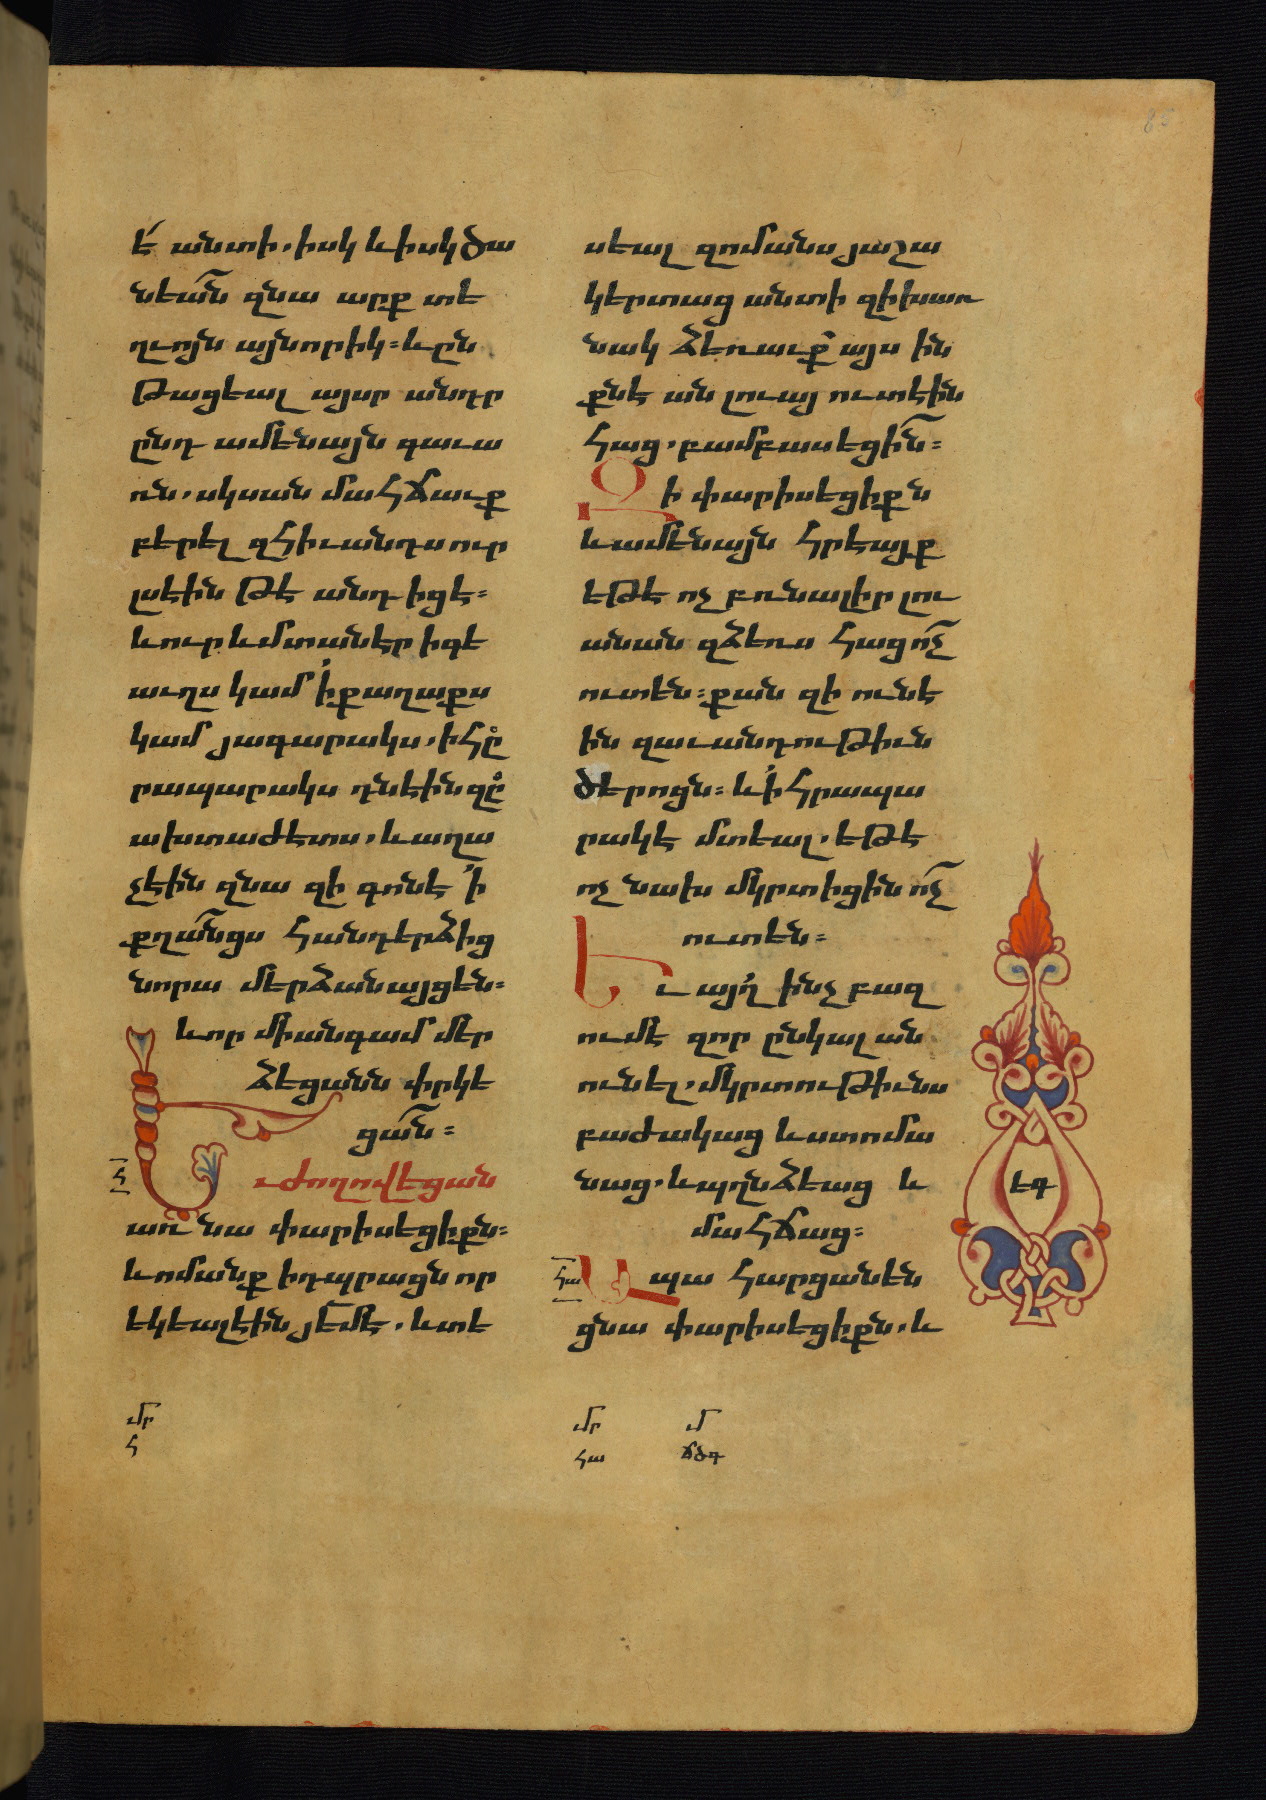 է՛ անտի. իսկ և իսկ ծա
նեա՜ն զնա արք տե
ղւոյն այնորիկ։ և ըն
թացեալ այսր անդր
ընդ ամենայն գաւա
ռն. սկսան մահճաւք
բերել զհիւանդս ուր
լսէին թէ անդ իցէ։
և ուր և մտանէր ի գե
աւղս կամ ՛ի քաղաքս
կամ յագարակս. ի հը
րապարակս դնէին զը
ախտաժէտս. և աղա
չէին զնա զի գոնէ ՛ի
քղա՜նցս հանդերձից
նորա մերձանայցեն։
և որ միանգամ մեր
ձեցանն փրկե
ցա՜ն։
Եւ ժողովեցան
առ նա փարիսեցիքն։
և ոմանք ի դպրացն որ
եկեալ էին յԷ՜մէ. և տե
սեալ զոմանս յաշա
կերտաց անտի զի խառ
նակ ձեռաւք՝ այս ին
քնէ անլուայ ուտէին
հաց. բամբասեցի՜ն։
Զի փարիսեցիքն
և ամենայն հրեայք
եթէ ոչ բռնալիր լու
անան զձեռս հաց ո՜չ
ուտեն։ քան զի ունէ
ին զաւանդութիւն
ծերոցն։ և ՛ի հրապա
րակէ մտեալ. եթէ
ոչ նախ մկրտիցին ո՜չ
ուտեն։
Եւ այղ ինչ բազ
ումէ զոր ընկալան
ունել. մկրտութիւնս
բաժակաց և ստոմա
նաց. և պղնձեաց և
մահճաց։
Ապա հարցանեն
ցնա փարիսեցիքն. և
հ
հա
եգ
մր
հ
մր մ
հա ճծգ
83